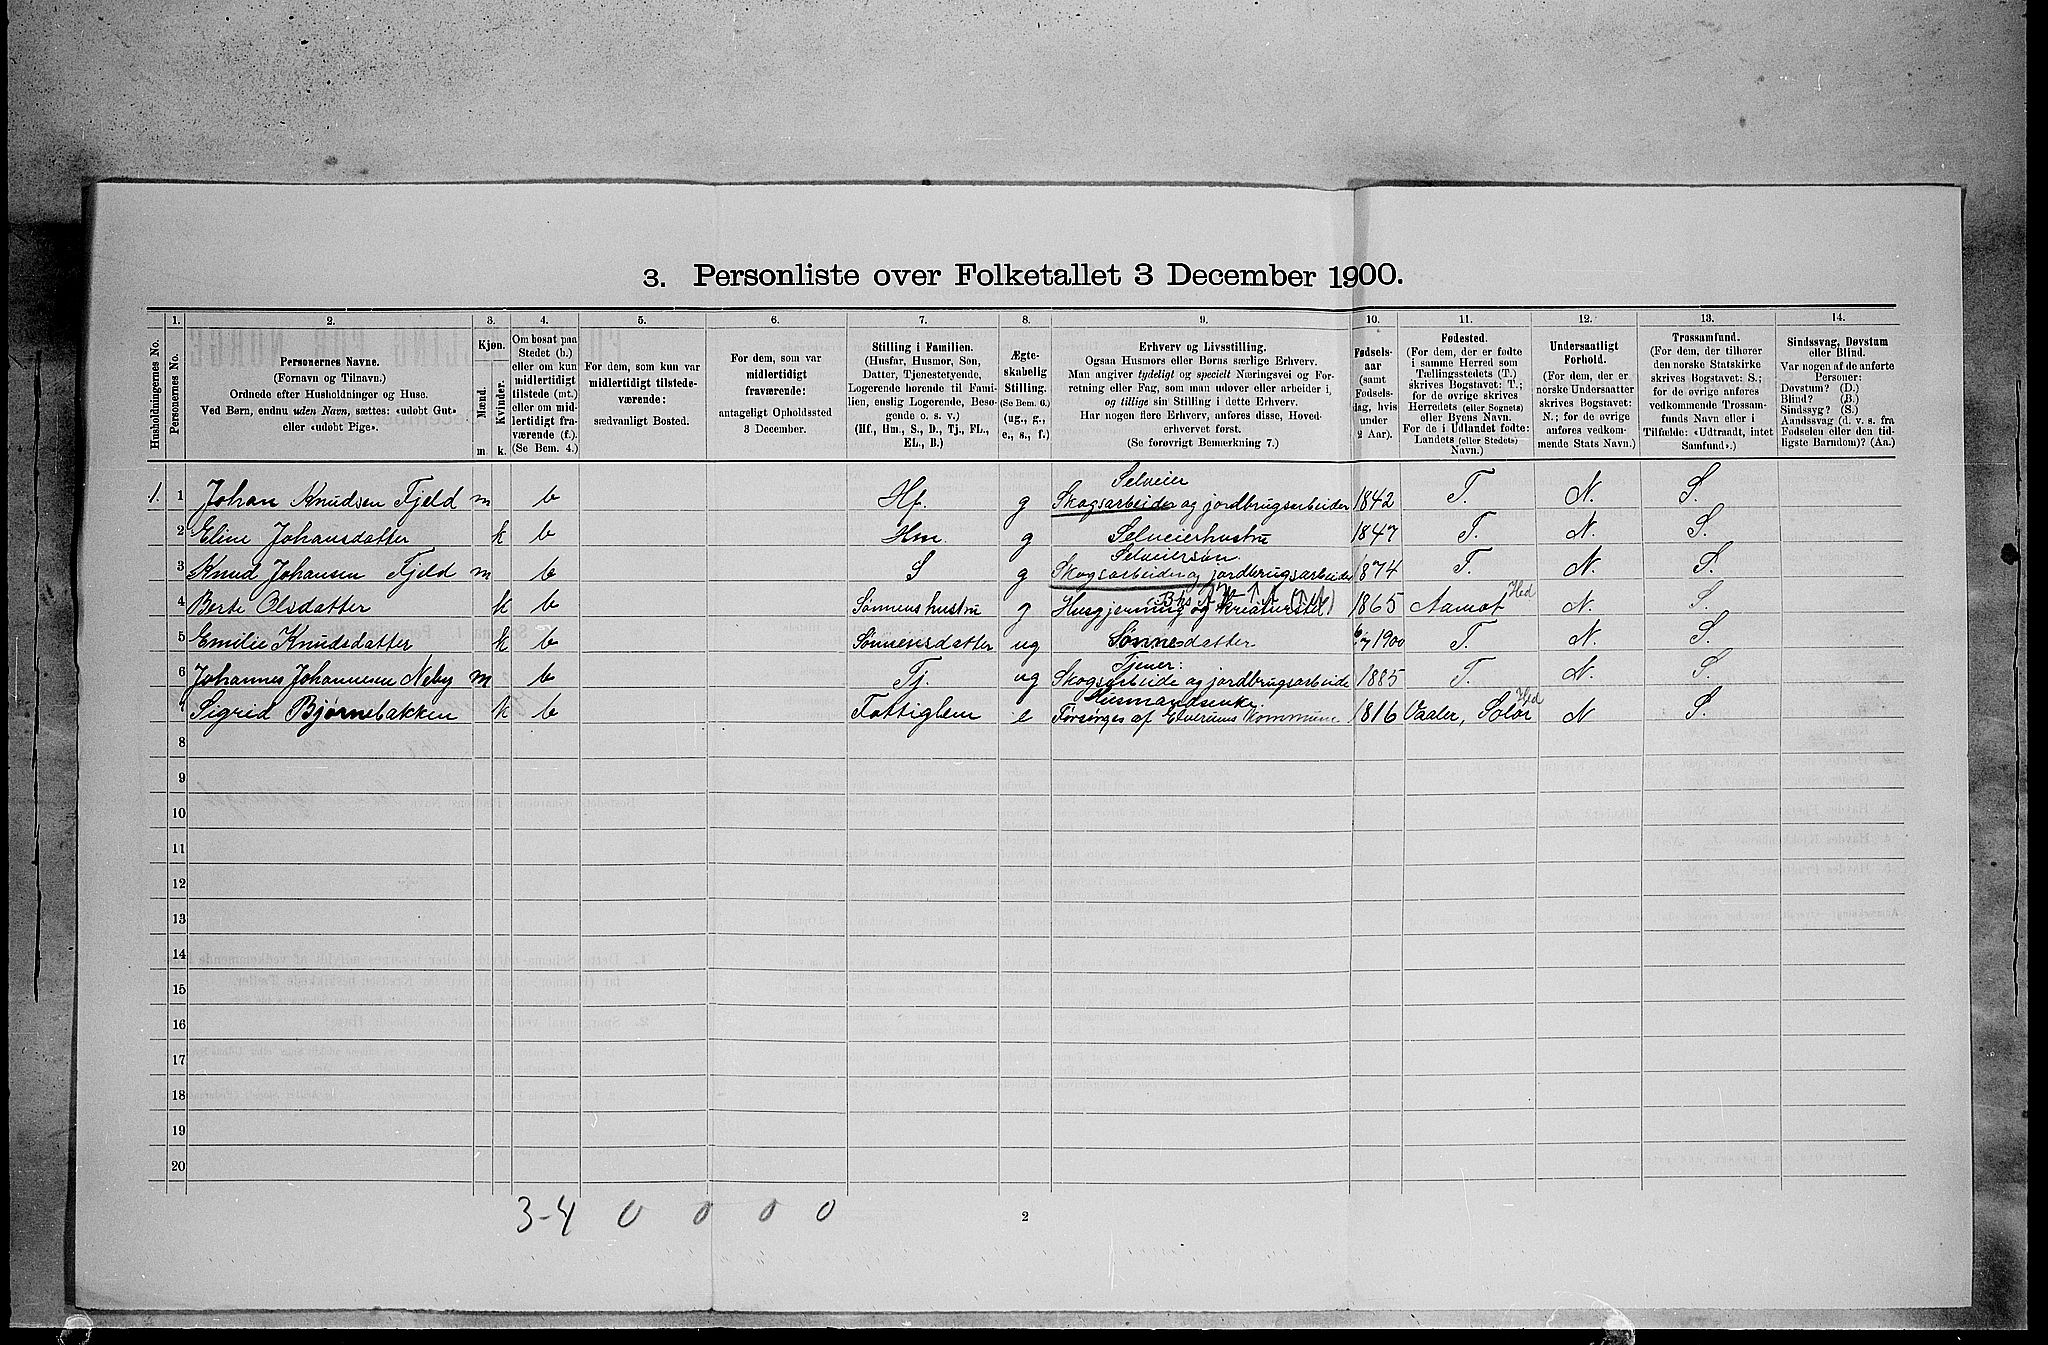 3. Personliste over Folketallet 3 December 1900.
1. 2. 3. 4. 5. 6. 7. 8. 9. 10. 11. 12. 13. 14.
Husholdningernes No.
Personernes No.
Personernes Navne.
(Fornavn og Tilnavn.)
Ordnede efter Husholdninger og Huse.
Ved Børn, endnu uden Navn, sættes: «udøbt Gut»
eller «udøbt Pige».
Kjøn.
Mænd.
Kvinder.
m. k.
Om bosat paa
Stedet (b.)
eller om kun
midlertidigt
tilstede (mt.)
eller om mid-
lertidigt fra-
værende (f.).
(Se Bem. 4.)
For dem, som kun var
midlertidigt tilstede-
værende:
sædvanligt Bosted.
For dem, som var
midlertidigt
fraværende:
antageligt Opholdssted
3 December.
Stilling i Familien.
(Husfar, Husmor, Søn,
Datter, Tjenestetyende,
Logerende hørende til Fami-
lien, enslig Logerende, Besø-
gende o. s. v.)
(Hf., Hm., S., D., Tj., FL.,
EL., B.)
Ægte-
skabelig
Stilling.
(Se Bem. 6.)
(ug., g.,
e., s., f.)
Erhverv og Livsstilling.
Ogsaa Husmors eller Børns særlige Erhverv.
Man angiver tydeligt og specielt Næringsvei og For-
retning eller Fag, som man udøver eller arbeider i,
og tillige sin Stilling i dette Erhverv.
Har nogen flere Erhverv, anføres disse, Hoved-
erhvervet først.
(Se forøvrigt Bemærkning 7.)
Fødsels-
aar
(samt
Fødsels-
dag, hvis
under
2 Aar).
Fødested.
(For dem, der er fødte
i samme Herred som
Tællingsstedets (T.)
skrives Bogstavet: T.;
for de øvrige skrives
Herredets (eller Sognets)
eller Byens Navn.
For de i Udlandet fødte:
Landets (eller Stedets)
Navn.)
Undersaatligt
Forhold.
(For dem, der er
norske Undersaatter
skrives Bogstavet:
N.; for de øvrige
anføres vedkom-
mende Stats Navn.)
Trossamfund.
(For dem, der tilhører
den norske Statskirke
skrives Bogstavet: S.;
for de øvrige anføres
vedkommende Trossam-
funds Navn eller i
Tilfælde: «Udtraadt, intet
Samfund».)
Sindssvag, Døvstum
eller Blind.
Var nogen af de anførte
Personer:
Døvstum? (D.)
Blind? (B.)
Sindssyg? (S.)
Aandssvag (d. v. s. fra
Fødselen eller den tid-
ligste Barndom)? (Aa.)
Selveier
1. 1 Johan Knudsen Fjeld m b Hf. g Skogsarbeider og jordbrugsarbeider 1842 T. N. S.
2 Eline Johansdatter k b Hm. g Selveierhustru 1847 T. N. S.
Selveiersøn.
3 Knud Johansen Fjeld m b S g Skogsarbeider og jordbrugsarbeider 1874 T. N. S.
4 Berte Olsdatter k b Sønnens hustru g Husgjerning og kreaturstel 1865 Aamot Hed N. S.
5 Emilie Knudsdatter k b Sønnens datter ug Sønnesdatter 6/7 1900 T. N. S.
Tjener:
6 Johannes Johannesen Neby m b Tj. ug Skogsarbeide og jordbrugsarbeide 1885 T. N. S.
Husmandsenke.
7 Sigrid Bjørnebakken k b Fattiglem e Forsørges af Elverums Kommune 1816 Vaaler, Solør Hed N S.
8
9
10
11
12
13
14
15
16
17
18
19
20
3-4 0 0 0 0
2